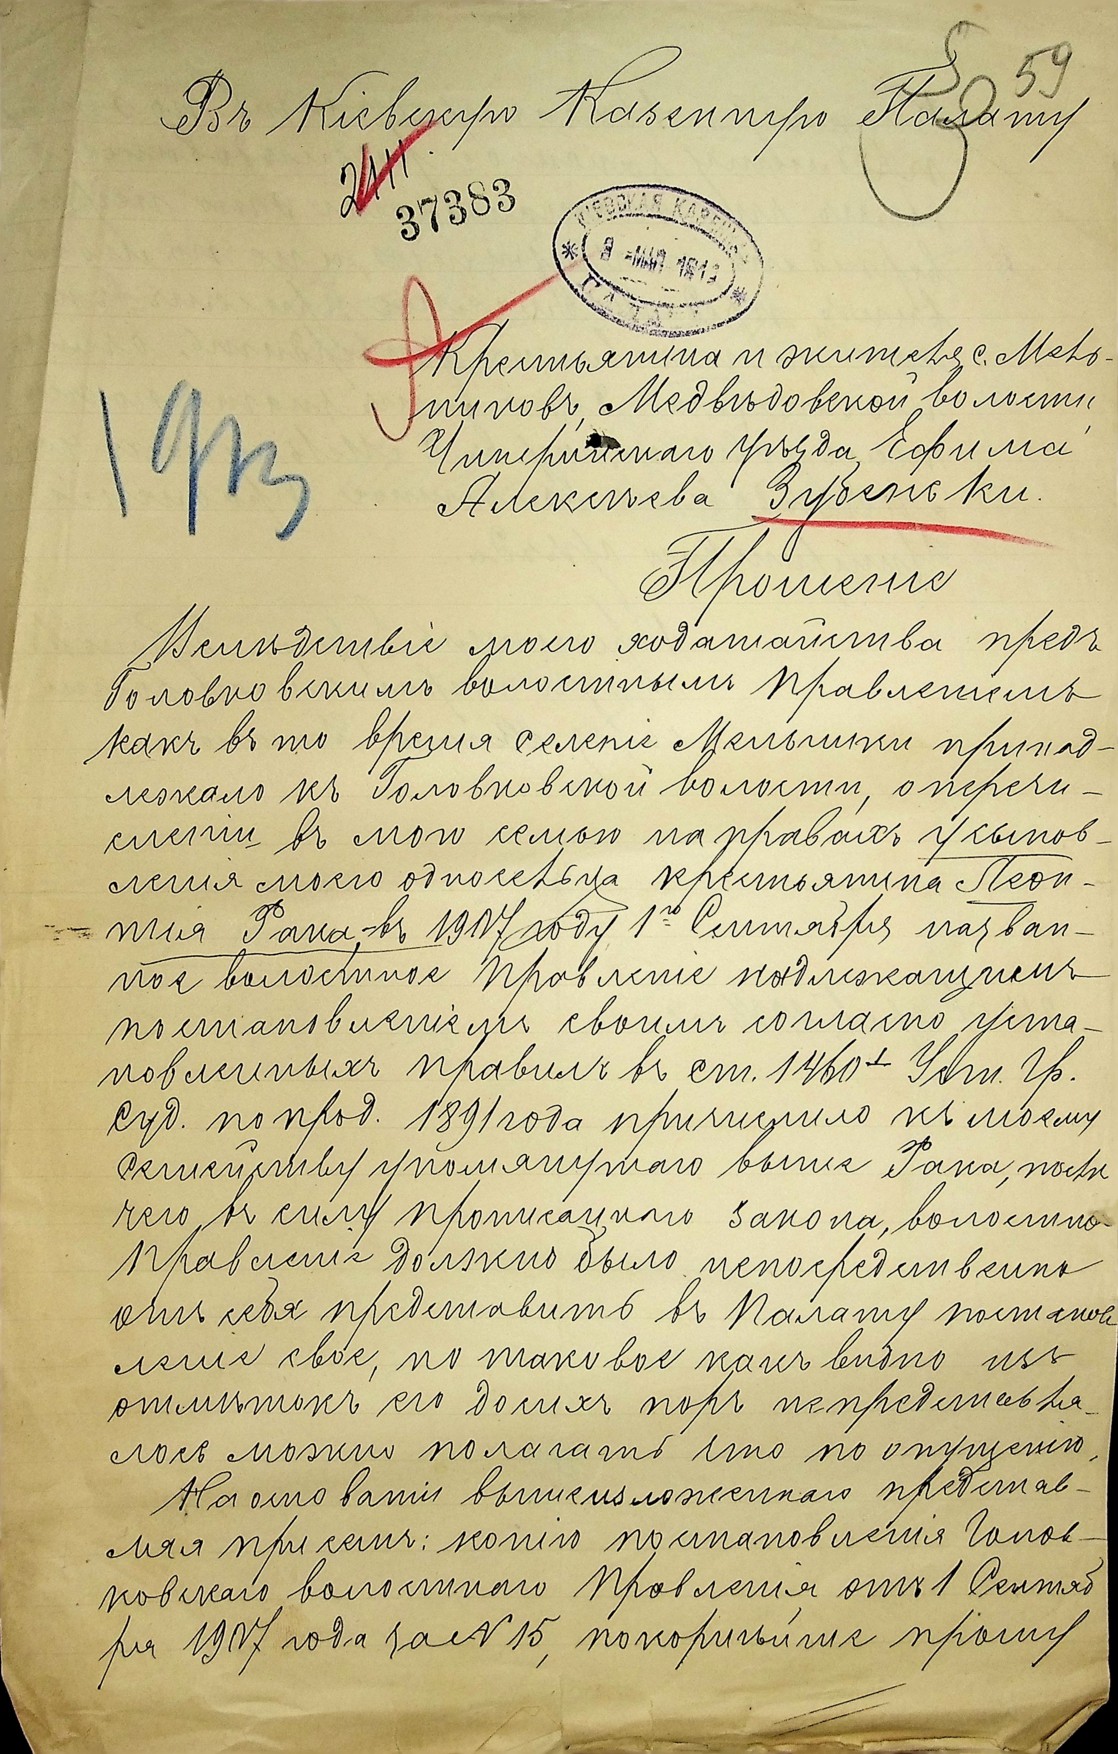 59
Въ Кіевскую Казенную Палату
37383
КІЕВСКАЯ КАЗЕННАЯ
ПАЛАТА
Крестьянина и жителя с. Мель-
никовъ, Медвѣдовской волости
Чигиринскаго уѣзда, Ефима
Алексѣева Зубеньки.
Прошеніе
Вслѣдствіе моего ходатайства предъ
Головковскимъ волостнымъ Правленіемъ
какъ въ то время селеніе Мельники принад-
лежало къ Головковской волости, о перечи-
сленіи въ мою семью на правахъ усынов-
ленія моего односельца крестьянина Леон-
тія Рака въ 1907 году 1го Сентября назван-
ное волостное Правленіе надлежащимъ
постановленіемъ своимъ согласно уста-
новленныхъ правилъ въ ст. 1460 Уст. Гр.
Суд. по прод. 1891 года причислило къ моему
Семейству упомянутаго выше Рака, послѣ
чего въ силу прописаннаго закона, волостно
Правленіе должно было непосредственно
отъ себя представить въ Палату постанов
леніе свое, но таковое какъ видно изъ
отмѣтокъ его до сихъ поръ непредставля-
лось можно полагать что по опущенію,
На основаніи вышеизложеннаго представ-
ляя при семъ: копію постановленія Голов-
ковскаго волостнаго Правленія отъ 1 Сентяб
ря 1907 года за № 15, покорнѣйше прошу